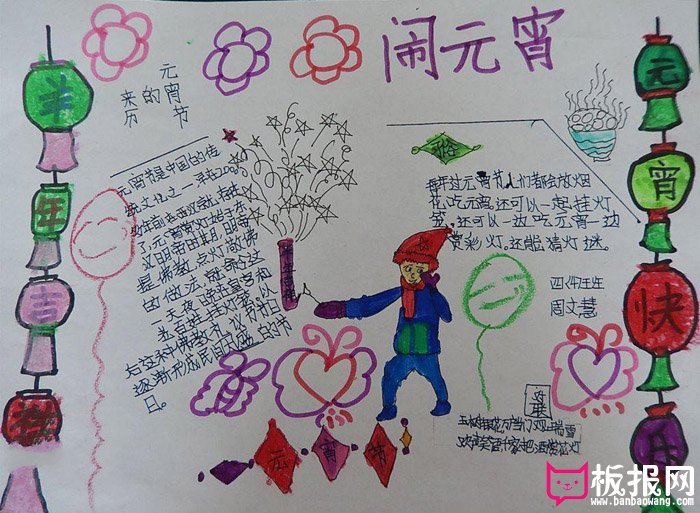 闹元宵
羊年吉祥
元宵快乐
元宵节
的
来历
元宵节是中国的传
统文化之一,早在2000
多年前西汉就有在
了,元宵赏灯始于东
汉明帝时期,明帝
提佛教,点灯敬佛
的做法,就命令这
一天夜晚在皇宫和
后这种佛教礼仪节日
逐渐形成民间盛大的节
日。
俗
每年过元宵节,人们都会放烟
花,吃元宵,还可以一起挂灯
笼,还可以一边吃元宵一边
赏彩灯,还能猜灯谜。
周文慧
对联
瑞雪
欢声笑语千家把酒赏花灯
元宵节
板报网
www.banbaowang.com